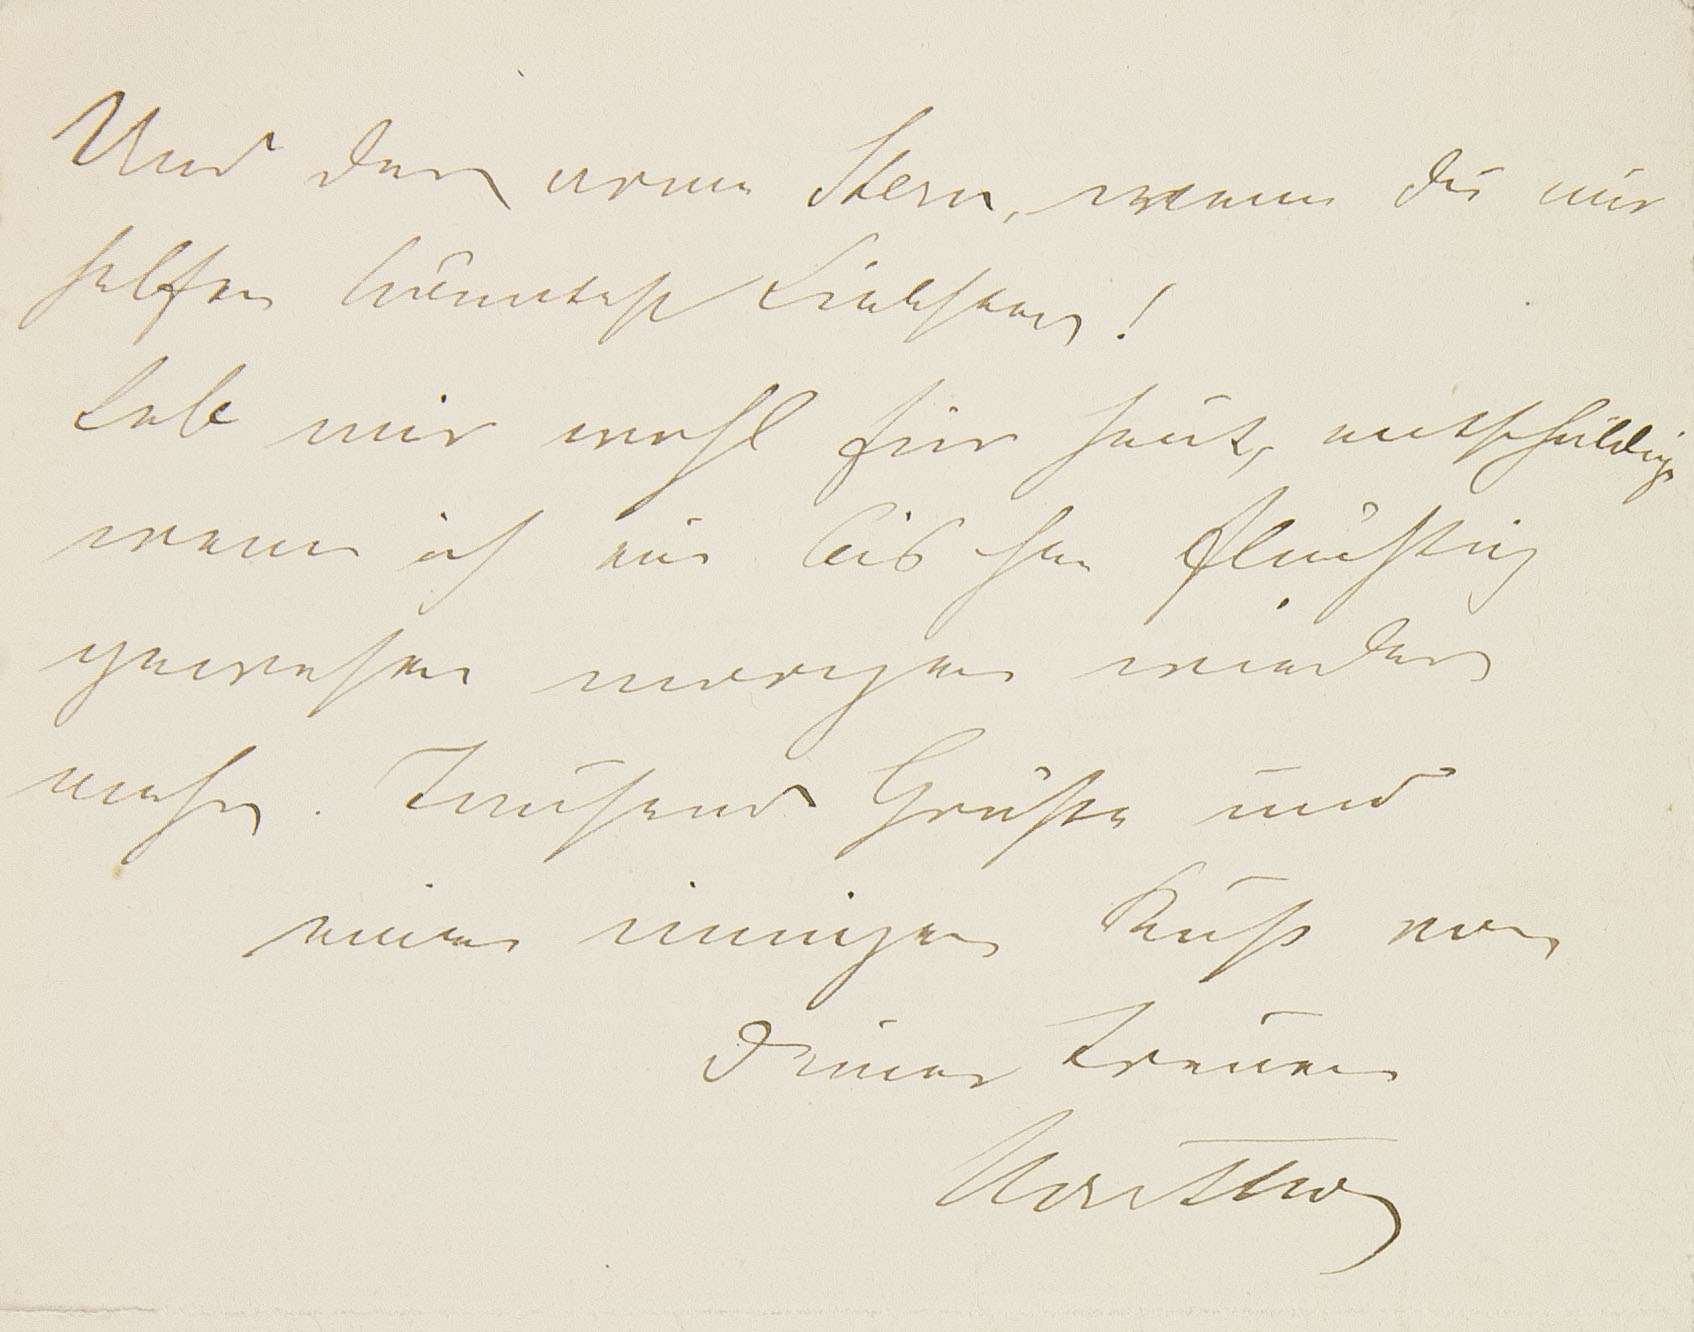 Und der arme Stern, wenn Du mir
helfen könntest Liebster!
Leb mir wohl für heut, entschuldige
wenn ich ein bischen flüchtig
gewesen morgen wieder
mehr. Tausend Grüße und
einen innigen Kuß von
Deiner treuen